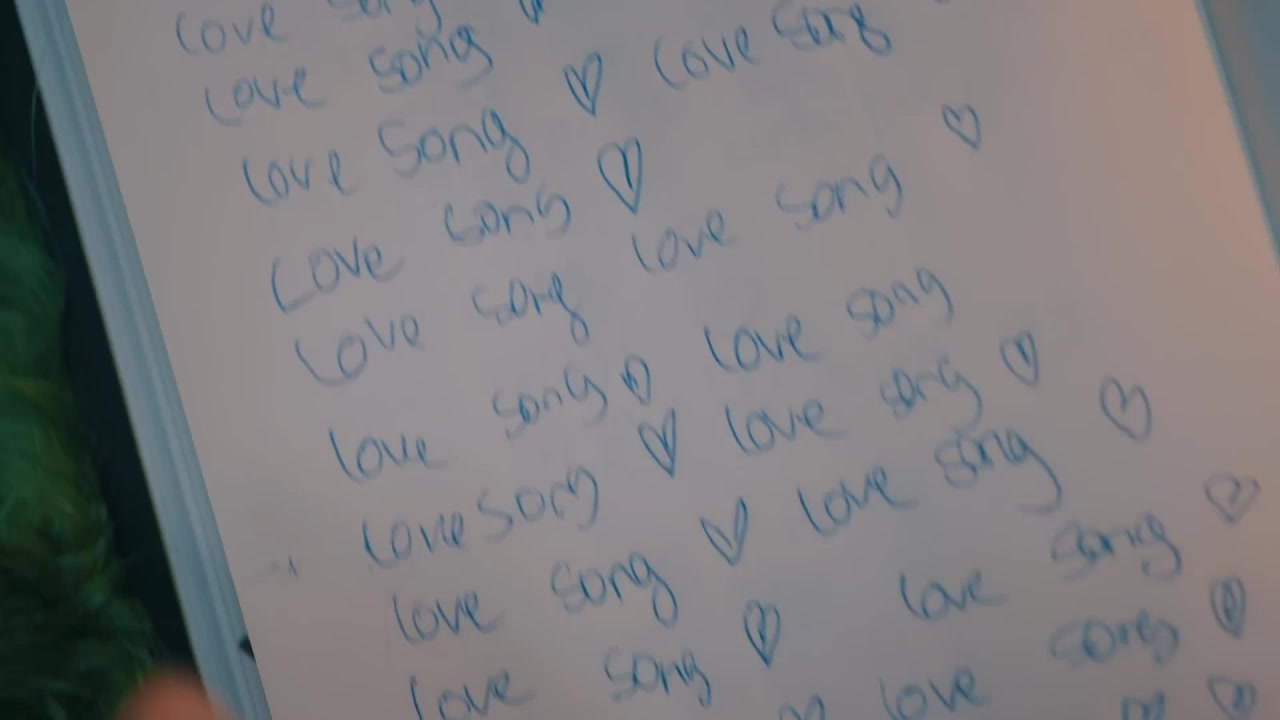 love song
love song
love song ♡ love song
love song ♡
love song love song ♡
love song ♡ love song
love song ♡ love song ♡
love song ♡ love song ♡
love song ♡ love song ♡
love song ♡